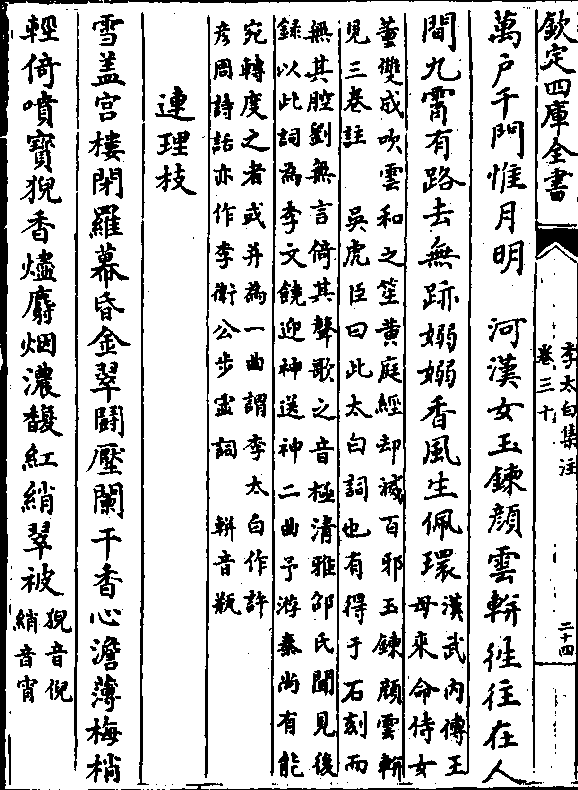 欽定四庫全書
李太白集注
卷三十
二十四
萬户千門惟月明　河漢女玉鍊顔雲軿往往在人
間九霄有路去無跡嫋嫋香風生佩環
漢武内傳王
母來命侍女
董雙成吹雲和之笙黄庭經却滅百邪玉鍊顔雲軿
見三卷註　吳虎臣曰此太白詞也有得于石刻而
無其腔劉無言倚其聲歌之音極清雅邵氏聞見後
録以此詞為李文饒迎神送神二曲予游秦尚有能
宛轉度之者或并為一曲謂李太白作許
彦周詩話亦作李衛公步虚詞　軿音瓶
連理枝
雪盖宫樓閉羅幕昏金翠鬭壓闌干香心澹薄梅梢
輕倚噴寳猊香燼麝烟濃馥紅綃翠被
猊音倪
綃音宵